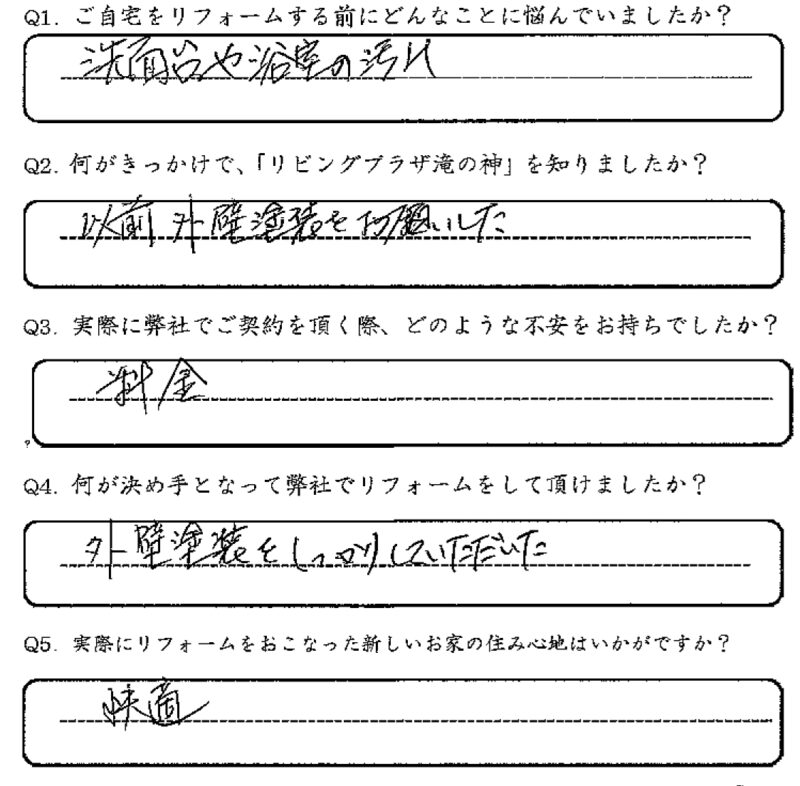 Q1. ご自宅をリフォームする前にどんなことに悩んでいましたか？
洗面台や浴室の汚れ
Q2. 何がきっかけで、「リビングプラザ滝の神」を知りましたか？
以前外壁塗装をお願いした
Q3. 実際に弊社でご契約を頂く際、どのような不安をお持ちでしたか？
料金
?
Q4. 何が決め手となって弊社でリフォームをして頂けましたか？
外壁塗装をしっかりしていただいた
Q5. 実際にリフォームをおこなった新しいお家の住み心地はいかがですか？
快適